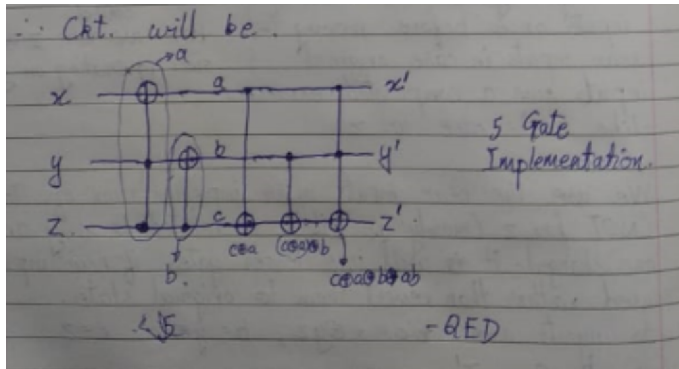 ∴ Ckt. will be.
a
x a x'
y b y'
5 Gate
Implementation.
z c z'
c⊕a (c⊕a)⊕b
b. c⊕a⊕b⊕ab
- QED